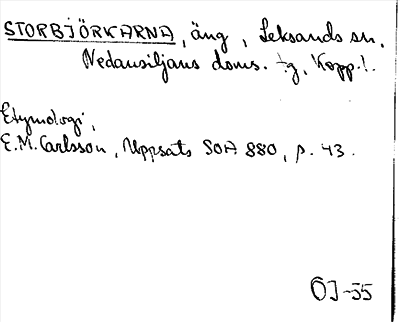 STORBJÖRKARNA, äng, Leksands sn.
Nedansiljans doms. tg, Kopp. l.
Etymologi,
E.M. Carlsson, Uppsats SOA 880, p. 43.
ÖJ-55